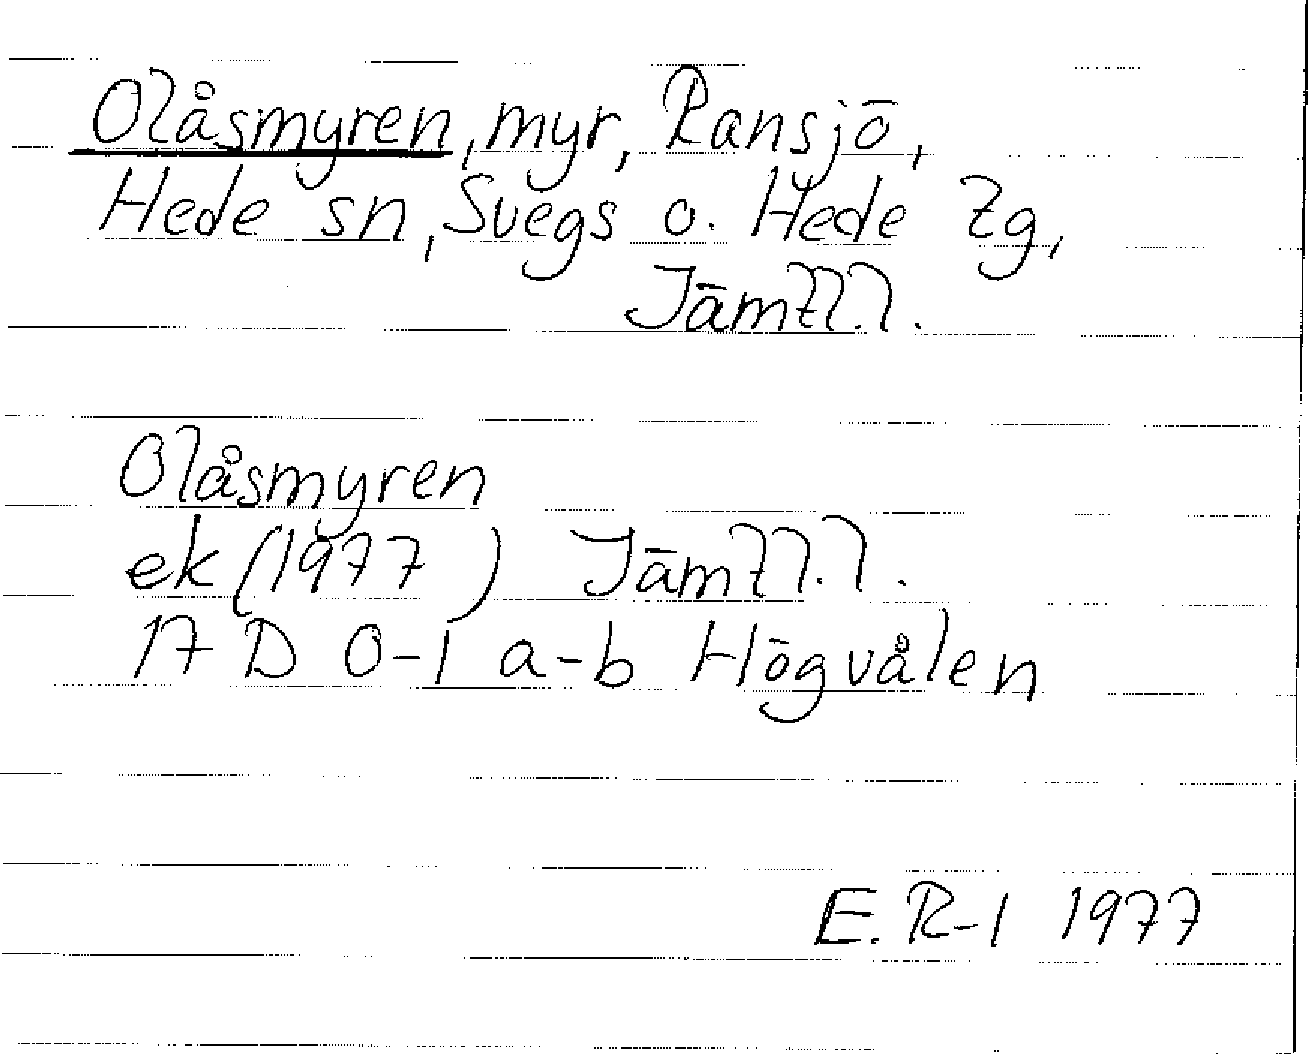 Olåsmyren, myr, Ransjö,
Hede sn, Svegs o. Hede tg,
Jämtl.l.
Olåsmyren
ek (1977) Jämtl.l.
17 D 0-1 a-b Högvålen
E. R-l 1977